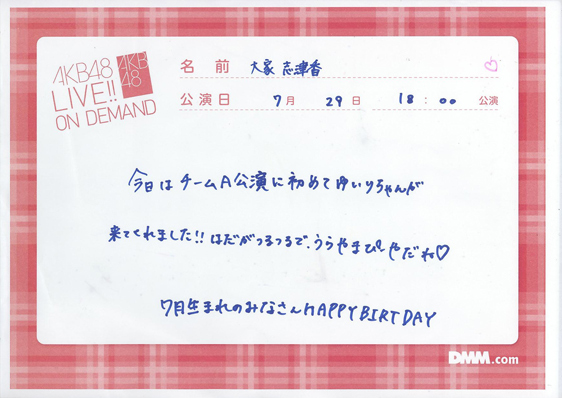 AKB48
LIVE!!
ON DEMAND
AKB
48
名前 大家 志津香
公演日 7月 29日 18:00 公演
今日は チームA公演に初めて ゆいりちゃんが
来てくれました!! はだがつるつるで、うらやまぴーやだね♡
7月生まれのみなさんHAPPY BIRTDAY
DMM.com